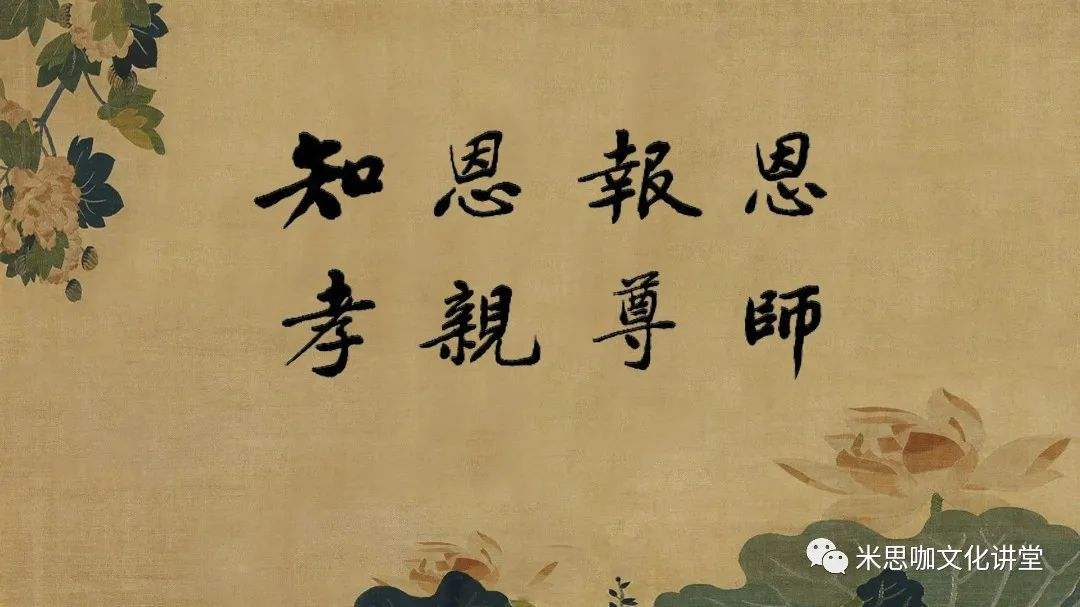 知恩報恩
孝親尊師
米思咖文化讲堂